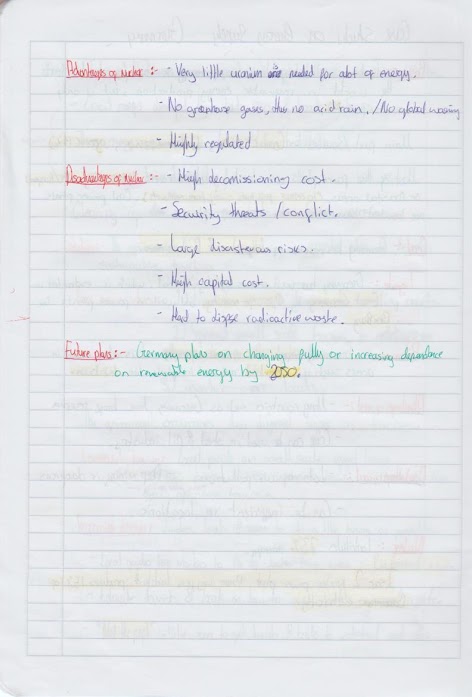 Advantages of nuclear :- - Very little uranium needed for alot of energy.
- No greenhouse gases, thus no acid rain. /No global warming
- Highly regulated
Disadvantages of nuclear :- - High decomissioning cost.
- Security threats / conflict.
- Large disasterous risks.
- High capital cost.
- Hard to dispse radioactive waste.
Future plans:- Germany plans on changing fully or increasing dependence
on renewable energy by 2050.